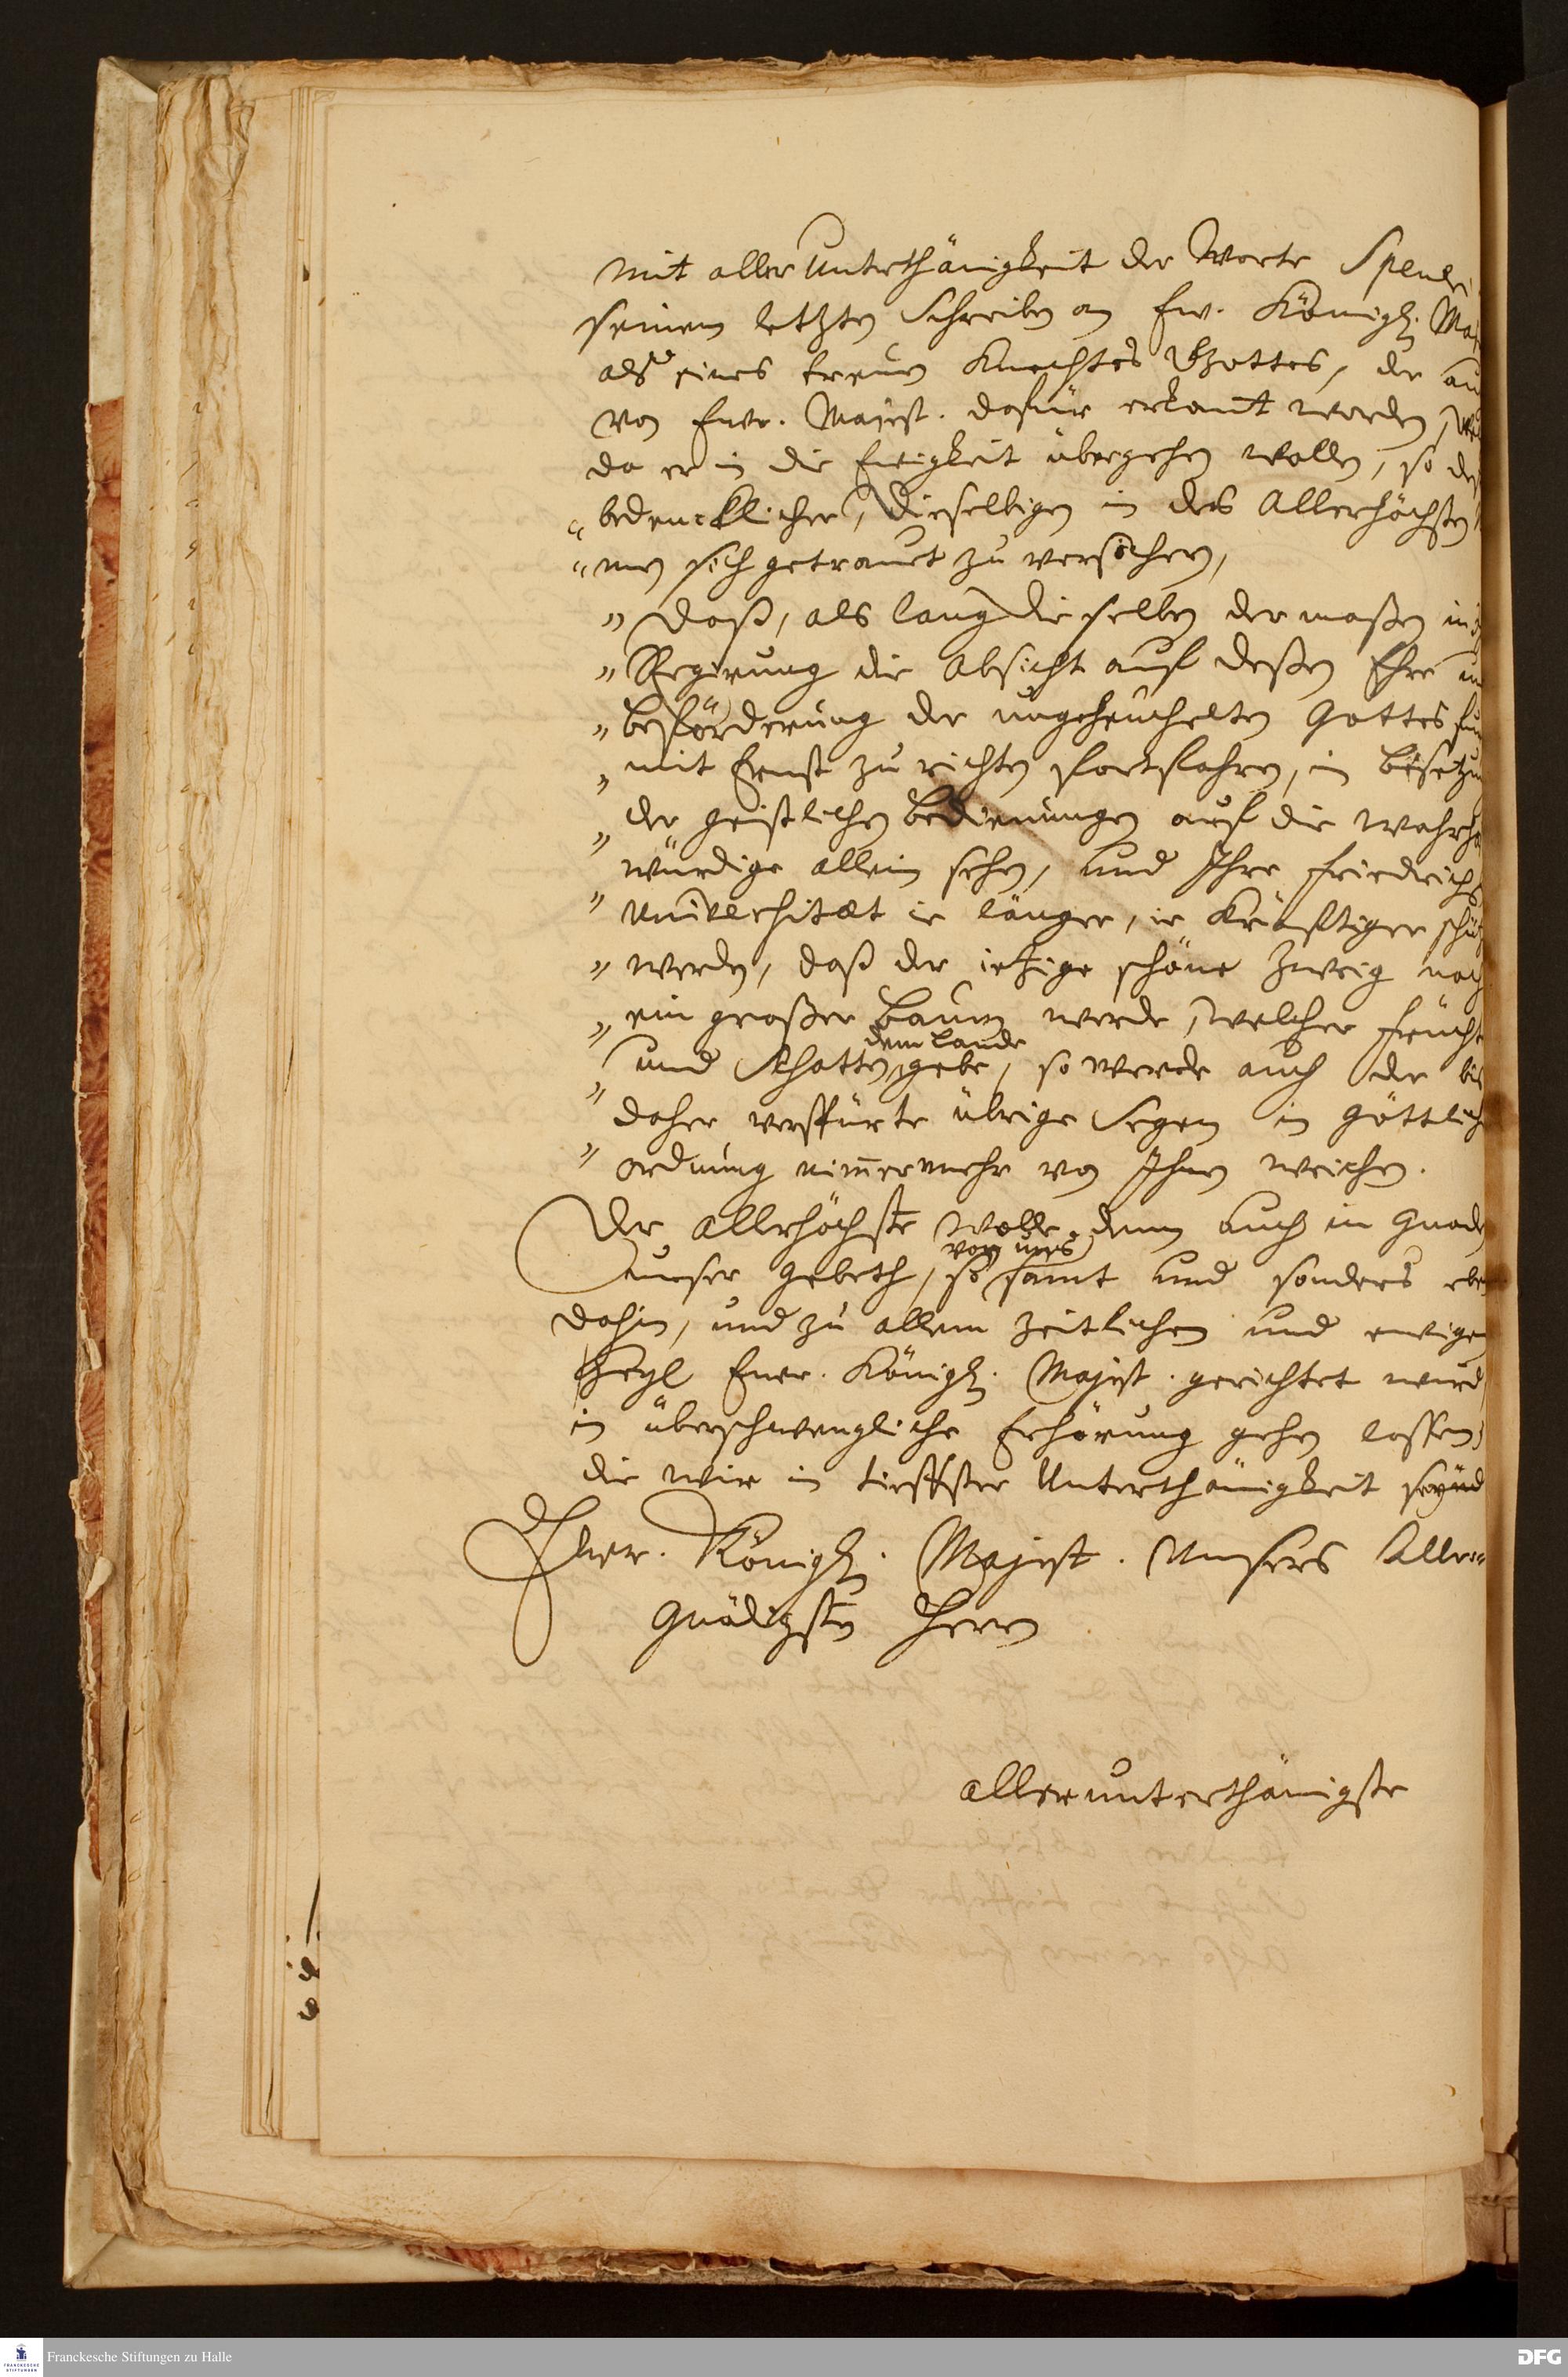 mit aller Unterthänigkeit der Worte Speneri
seinem letzten Schreiben an Ew. Königl. Maj
als eines treuen Knechtes Gottes, der au
von Ewr. Majest. dafür erkant worden,
da er in die Ewigkeit übergehen wollen, so de
"bedencklicher, dieselbigen in des Allerhöchsten
"men sich getrauet zu versichern,
"daß, als lang dieselben der maßen in
"Regirung die Absicht auf deßen Ehre un
"beförderung der ungeheuchelten Gottesfur
"mit Ernst zu richten fortfahren, in besetzu
"der geistlichen bedienungen auf die wahrha
"würdige allein sehen, und Ihre Friedrichs
"Universitæt ie länger, ie kräfftiger schütz
"werden, daß der ietzige schöne Zweig noch
"ein großer Baum werde, welcher Frücht
dem Lande
"und Schatten gebe, so werde auch der bis
"daher verspürte übrige Segen in göttlich
"ordnung nim̄ermehr von Ihnen weichen.
Der Allerhöchste wolle denn auch in Gnade
von uns
unser Gebeth, so samt und sonders eben
dahin, und zu allem zeitlichen und ewigen
Heyl Ewr. Königl. Majest. gerichtet wird,
in überschwengliche Erhörung gehen lassen,
die wir in tieffster Unterthänigkeit seynd
Ewr. Königl. Majest. Unsers Aller=
Gnädigsten Herrn
allerunterthänigste
Franckesche Stiftungen zu Halle
FRANCKESCHE STIFTUNGEN
DFG